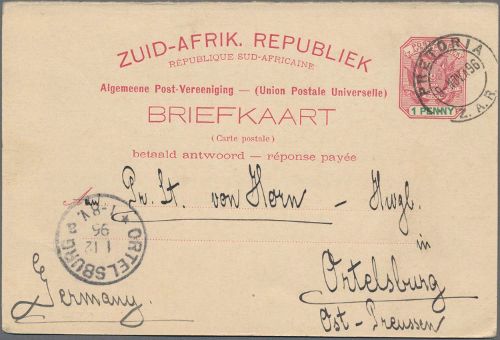 ZUID-AFRIK. REPUBLIEK
RÉPUBLIQUE SUD-AFRICAINE
Algemeene Post-Vereeniging — (Union Postale Universelle)
BRIEFKAART
(Carte postale)
betaald antwoord — réponse payée
1 PENNY
PRETORIA
Z.A.R.
An
von Horn —
in
Ortelsburg
Ost-Preussen
Germany.
ORTELSBURG
1 12
95
7-8 V.